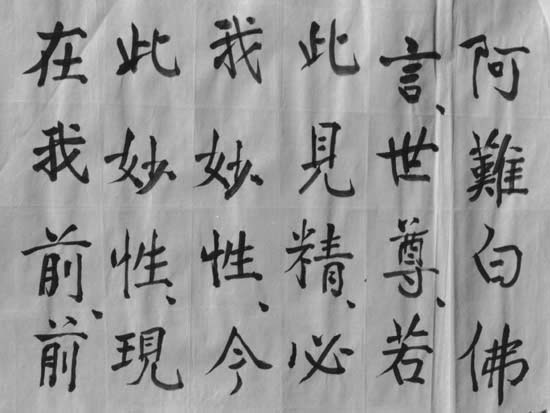 阿難白佛
言、世尊、若
此見精、必
我妙、性、今
此妙、性、現
在我前、前